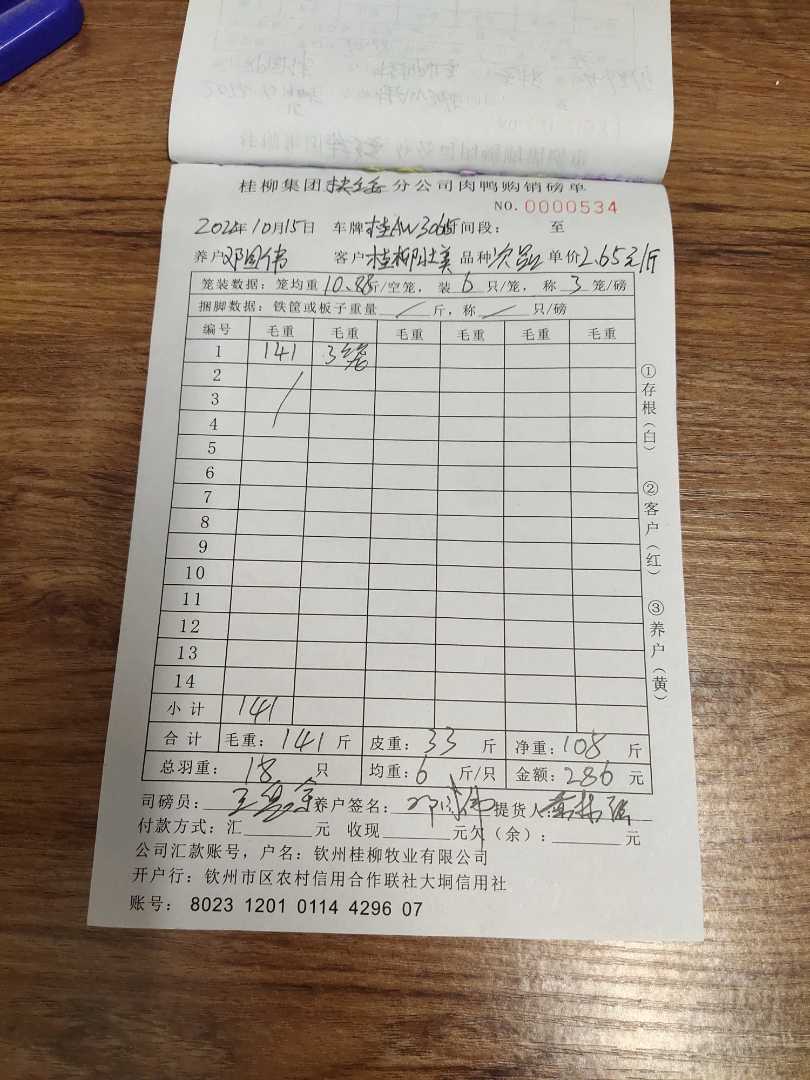 桂柳集团扶绥分公司肉鸭购销磅单
NO. 0000534
年10月15日 车牌桂AW3065时间段： 至
养户邓国伟 客户桂柳壮美 品种次品 单价2.65元/斤
笼装数据：笼均重10.88斤/空笼，装6只/笼，称3笼/磅
捆脚数据：铁筐或板子重量/斤，称/只/磅
编号 毛重 毛重 毛重 毛重 毛重 毛重
1 141 3笼
2
3
4
5
6
7
8
9
10
11
12
13
14
小计 141
合计 毛重：141斤 皮重：33斤 净重：108斤
总羽重：18只 均重：6斤/只 金额：286元
司磅员： 养户签名：邓国伟 提货人：
付款方式：汇____元 收现____元欠（余）：____元
公司汇款账号，户名：钦州桂柳牧业有限公司
开户行：钦州市区农村信用合作联社大垌信用社
账号： 8023 1201 0114 4296 07
①存根（白）
②客户（红）
③养户（黄）